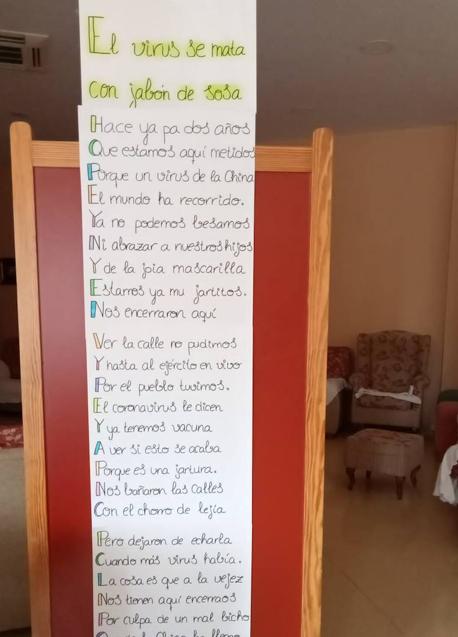 El virus se mata
con jabón de sosa
Hace ya pa dos años
Que estamos aquí metidos
Porque un virus de la China
El mundo ha recorrido.
Ya no podemos besarnos
Ni abrazar a nuestros hijos
Y de la joia mascarilla
Estamos ya mu jartitos.
Nos encerraron aquí
Ver la calle no pudimos
Y hasta al ejército en vivo
Por el pueblo tuvimos.
El coronavirus le dicen
Y ya tenemos vacuna
A ver si esto se acaba
Porque es una jartura.
Nos bañaron las calles
Con el chorro de lejía
Pero dejaron de echarla
Cuando más virus había.
La cosa es que a la vejez
Nos tienen aquí encerraos
Por culpa de un mal bicho